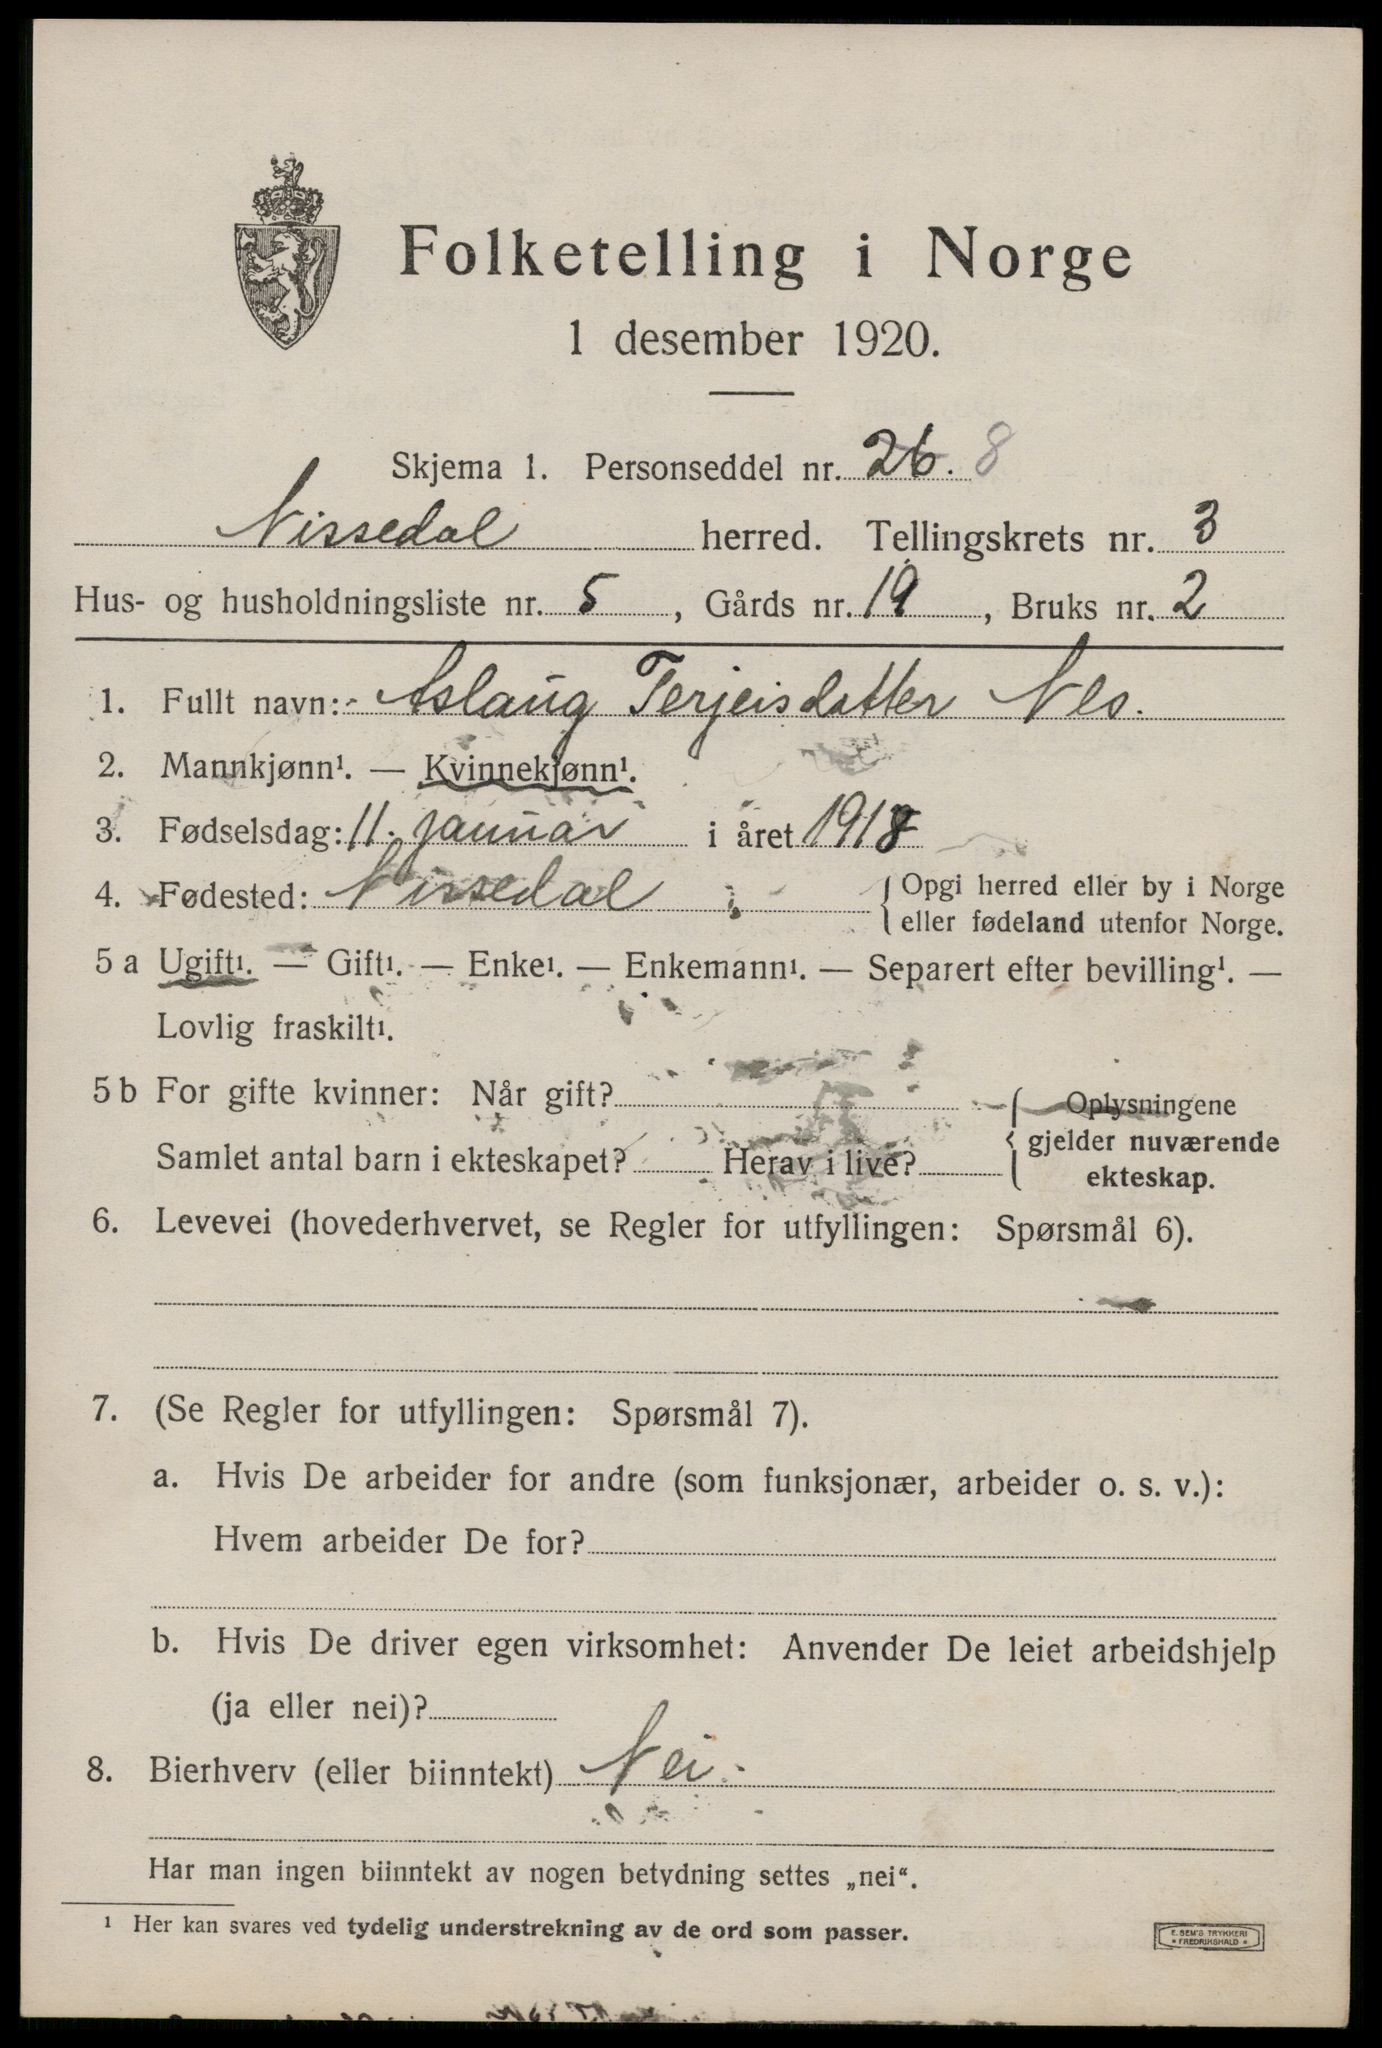 Folketelling i Norge
1 desember 1920.
Skjema 1. Personseddel nr. 26. 8
Nissedal herred. Tellingskrets nr. 3
Hus- og husholdningsliste nr. 5, Gårds nr. 19, Bruks nr. 2
1. Fullt navn: Aslaug Terjeisdatter Nes.
2. Mannkjønn¹. — Kvinnekjønn¹.
3. Fødselsdag: 11. januar i året 1918
4. Fødested: Nissedal { Opgi herred eller by i Norge
eller fødeland utenfor Norge.
5 a Ugift¹. — Gift¹. — Enke¹. — Enkemann¹. — Separert efter bevilling¹. —
Lovlig fraskilt¹.
5 b For gifte kvinner: Når gift? { Oplysningene
gjelder nuværende
Samlet antal barn i ekteskapet? Herav i live?
ekteskap.
6. Levevei (hovederhvervet, se Regler for utfyllingen: Spørsmål 6).
7. (Se Regler for utfyllingen: Spørsmål 7).
a. Hvis De arbeider for andre (som funksjonær, arbeider o. s. v.):
Hvem arbeider De for?
b. Hvis De driver egen virksomhet: Anvender De leiet arbeidshjelp
(ja eller nei)?
8. Bierhverv (eller biinntekt) Nei.
Har man ingen biinntekt av nogen betydning settes „nei“.
¹ Her kan svares ved tydelig understrekning av de ord som passer.
E. SEM'S TRYKKERI
* FREDRIKSHALD *